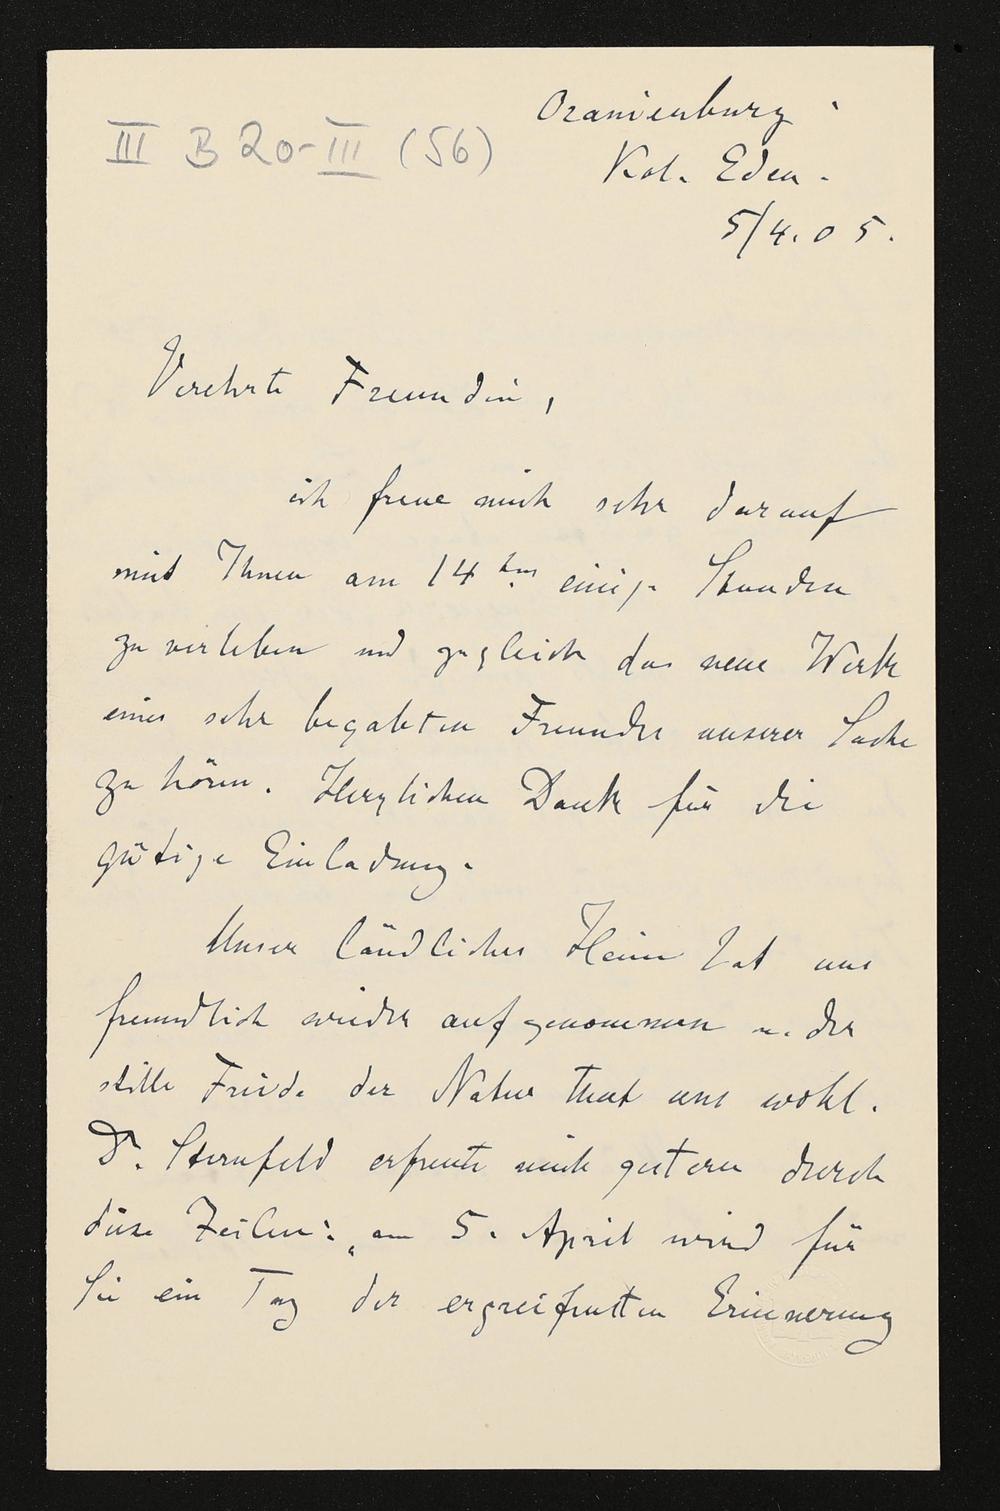 III B 20-III (56)
Oranienburg.
Kol. Eden.
5/4. 05.
Verehrte Freundin,
ich freue mich sehr darauf
mit Ihnen am 14ten einige Stunden
zu verleben und zugleich das neue Werk
eines sehr begabten Freundes unserer Sache
zu hören. Herzlichen Dank für die
gütige Einladung.
Unser ländliches Heim hat uns
freundlich wieder aufgenommen u. der
stille Friede der Natur that uns wohl.
Dr. Sternfeld erfreute mich gestern durch
diese Zeilen: „am 5. April wird für
Sie ein Tag der ergreifendsten Erinnerung